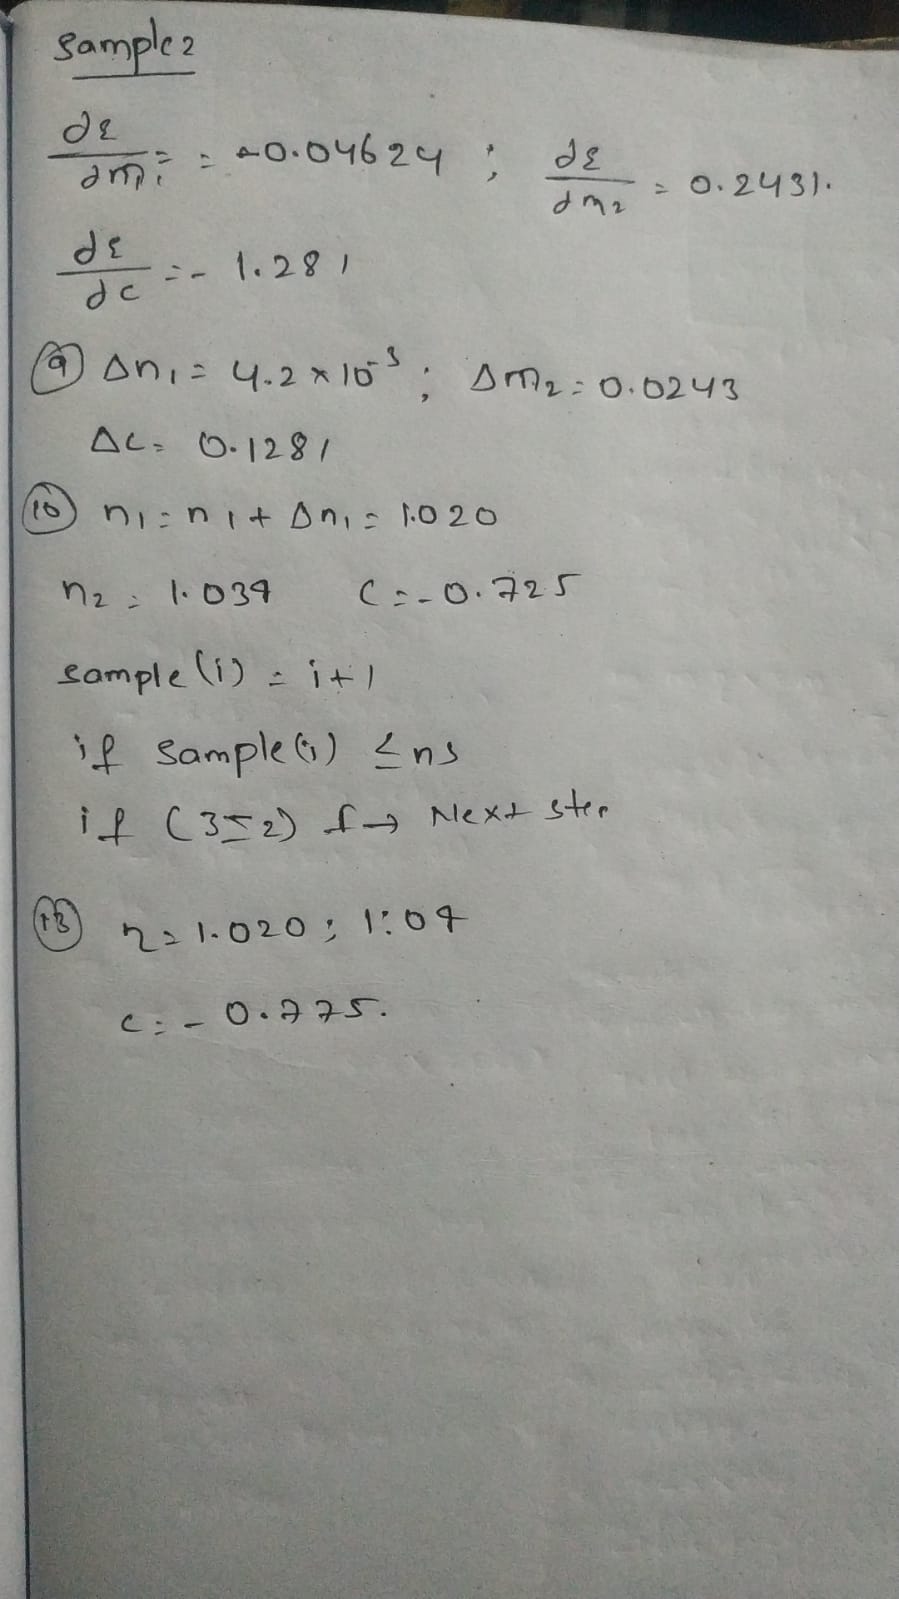 Sample 2
∂ε/∂m₁ = = -0.04624 ; ∂ε/∂m₂ = 0.2431.
∂ε/∂c = - 1.281
(9) Δn₁ = 4.2 × 10⁻³ ; Δm₂ = 0.0243
Δc = 0.1281
(10) n₁ = n₁ + Δn₁ = 1.020
n₂ = 1.039 c = -0.725
sample(i) = i+1
if sample(i) ≤ ns
if (3 ≤ 2) f → Next step
n = 1.020 ; 1.04
c = - 0.775.